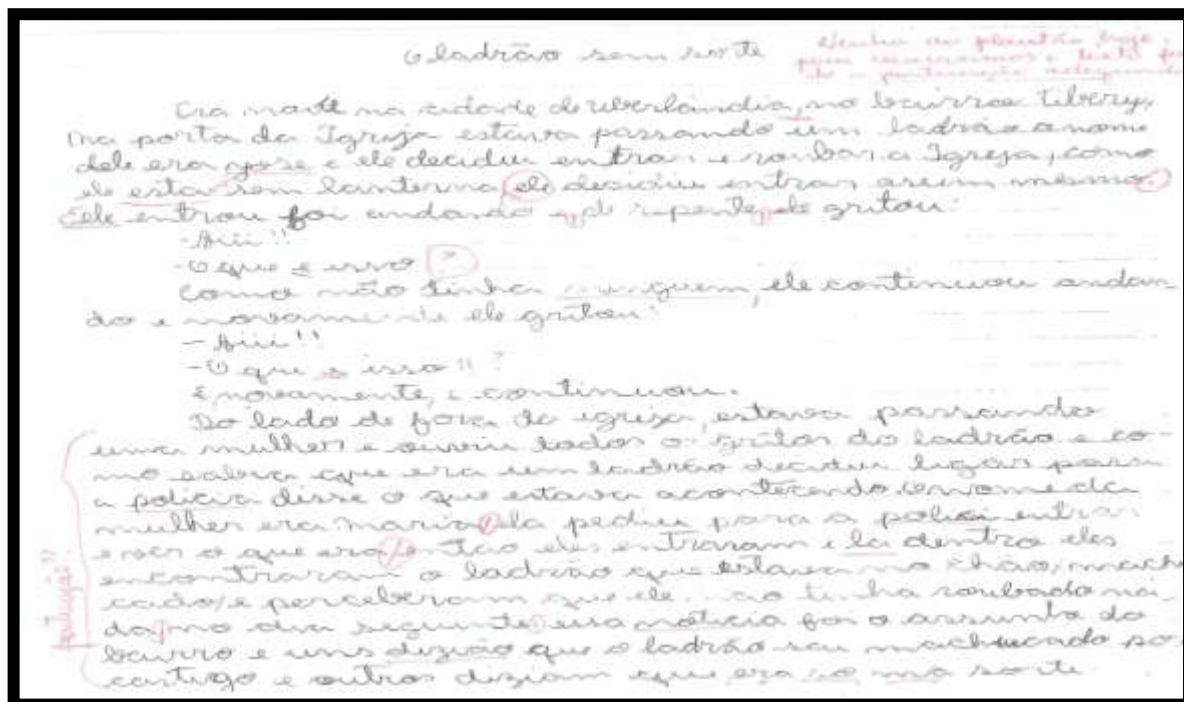 O ladrão sem sorte
Venha ao plantão hoje
para
pontuação adequada
Era noite na cidade de uberlândia, no bairro Tibery,
na porta da Igreja estava passando um ladrão o nome
dele era jose e ele decidiu entrar e roubar a Igreja, como
ele esta sem lanterna ele decidiu entrar assim mesmo.
ele entrou foi andando e de repente, ele gritou:
- Aiii!!
- O que e isso ?
Como não tinha ninguem, ele continuou andan
do e novamente ele gritou:
- Aiii!!
- O que e isso!! ?
E novamente, e continuou.
Do lado de fora da igreja, estava passando
uma mulher e ouviu todos o gritos do ladrão e co-
mo sabia que era um ladrão decidiu ligar para
a policia disse o que estava acontecendo. o nome da
mulher era maria, ela pediu para a polícia entrar
e ver o que era, então eles entraram e la dentro eles
encontraram o ladrão que estava no chão, machu
cado, e perceberam que ele não tinha roubado na
da, no dia seguinte, essa noticia foi o assunto do
bairro e uns dizião que o ladrão saiu machucado por
castigo e outros diziam que era so ma sorte
Pontuação!!